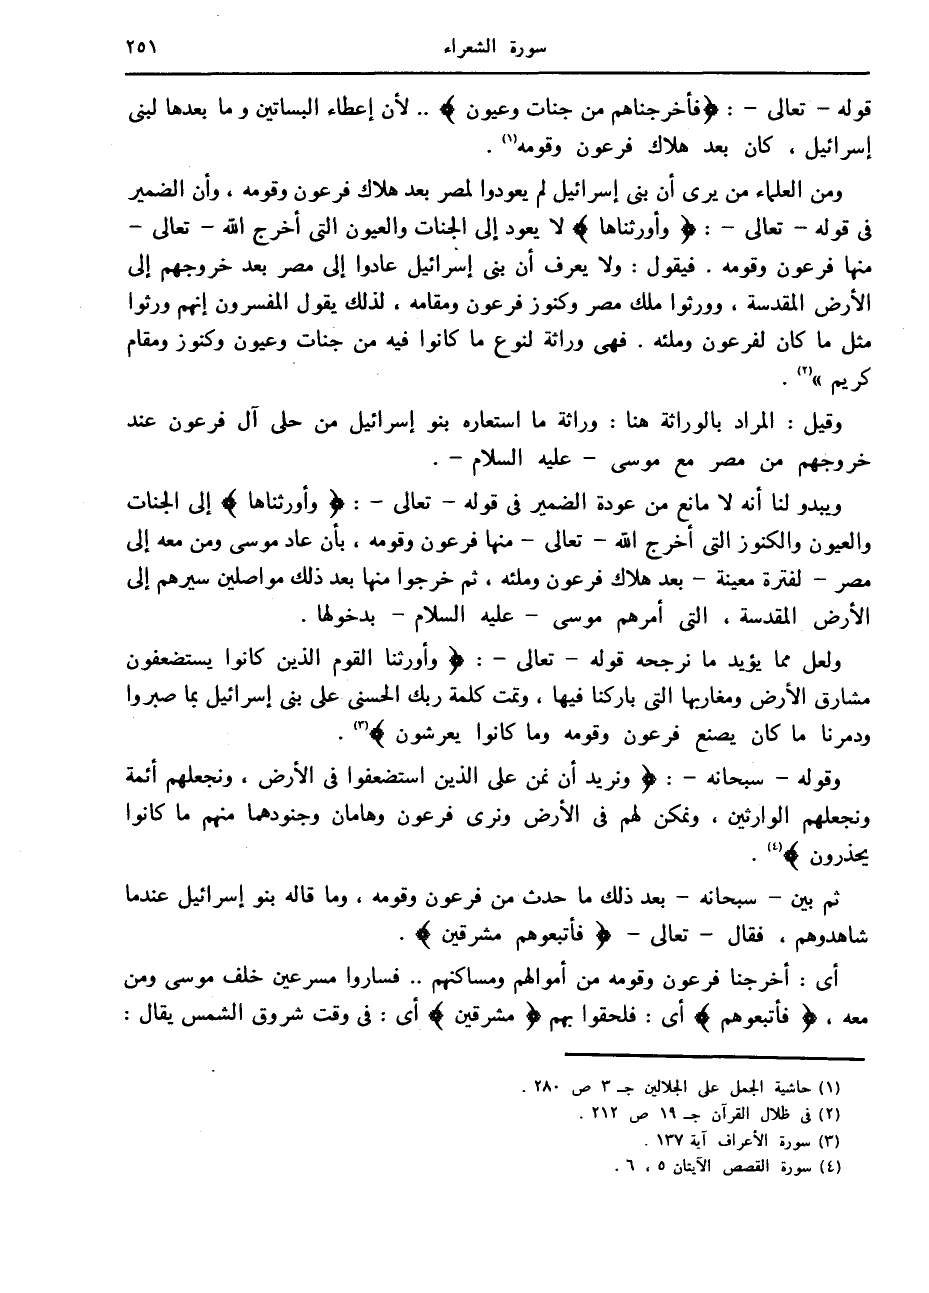 سورة الشعراء ٢٥١
قوله - تعالى - : ﴿فأخرجناهم من جنات وعيون ﴾ .. لأن إعطاء البساتين و ما بعدها لبنى
إسرائيل ، كان بعد هلاك فرعون وقومه(١) .
ومن العلماء من يرى أن بنى إسرائيل لم يعودوا لمصر بعد هلاك فرعون وقومه ، وأن الضمير
فى قوله - تعالى - : ﴿ وأورثناها ﴾ لا يعود إلى الجنات والعيون التى أخرج الله - تعالى -
منها فرعون وقومه . فيقول : ولا يعرف أن بنى إسرائيل عادوا إلى مصر بعد خروجهم إلى
الأرض المقدسة ، وورثوا ملك مصر وكنوز فرعون ومقامه ، لذلك يقول المفسرون إنهم ورثوا
مثل ما كان لفرعون وملئه . فهى وراثة لنوع ما كانوا فيه من جنات وعيون وكنوز ومقام
كريم »(٢) .
وقيل : المراد بالوراثة هنا : وراثة ما استعاره بنو إسرائيل من حلى آل فرعون عند
خروجهم من مصر مع موسى - عليه السلام - .
ويبدو لنا أنه لا مانع من عودة الضمير فى قوله - تعالى - : ﴿ وأورثناها ﴾ إلى الجنات
والعيون والكنوز التى أخرج الله - تعالى - منها فرعون وقومه ، بأن عاد موسى ومن معه إلى
مصر - لفترة معينة - بعد هلاك فرعون وملئه ، ثم خرجوا منها بعد ذلك مواصلين سيرهم إلى
الأرض المقدسة ، التى أمرهم موسى - عليه السلام - بدخولها .
ولعل مما يؤيد ما نرجحه قوله - تعالى - : ﴿ وأورثنا القوم الذين كانوا يستضعفون
مشارق الأرض ومغاربها التى باركنا فيها ، وتمت كلمة ربك الحسنى على بنى إسرائيل بما صبروا
ودمرنا ما كان يصنع فرعون وقومه وما كانوا يعرشون ﴾(٣) .
وقوله - سبحانه - : ﴿ ونريد أن نمن على الذين استضعفوا فى الأرض ، ونجعلهم أئمة
ونجعلهم الوارثين ، ونمكن لهم فى الأرض ونرى فرعون وهامان وجنودهما منهم ما كانوا
يحذرون ﴾(٤) .
ثم بين - سبحانه - بعد ذلك ما حدث من فرعون وقومه ، وما قاله بنو إسرائيل عندما
شاهدوهم ، فقال - تعالى - ﴿ فأتبعوهم مشرقين ﴾ .
أى : أخرجنا فرعون وقومه من أموالهم ومساكنهم .. فساروا مسرعين خلف موسى ومن
معه ، ﴿ فأتبعوهم ﴾ أى : فلحقوا بهم ﴿ مشرقين ﴾ أى : فى وقت شروق الشمس يقال :
(١) حاشية الجمل على الجلالين جـ ٣ ص ٢٨٠ .
(٢) فى ظلال القرآن جـ ١٩ ص ٢١٢ .
(٣) سورة الأعراف آية ١٣٧ .
(٤) سورة القصص الآيتان ٥ ، ٦ .